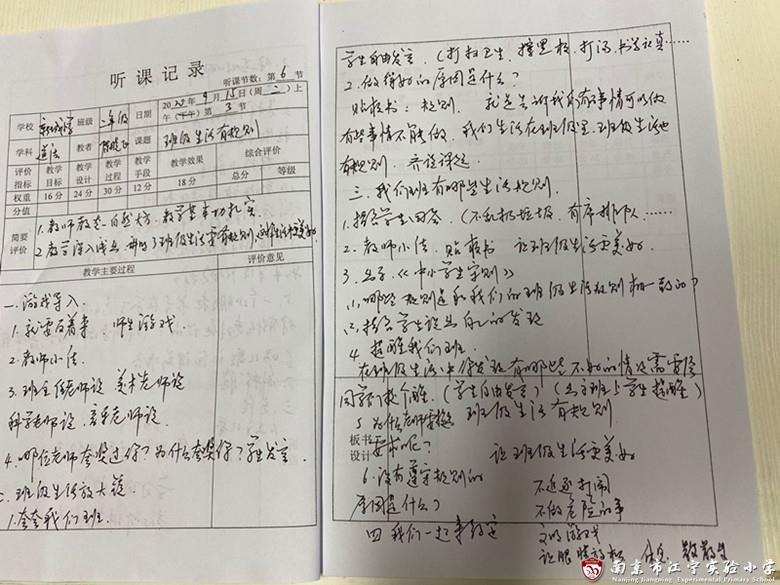 听课记录
听课节数:第 6 节
学校 班级 二年级 日期 2020年9月15日(周二)上午(下午)第3节
学科 道法 教者 课题 班级生活有规则
评价指标 教学目标 教学设计 教学过程 教学手段 教学效果 综合评价
总分 等级
权重 16分 24分 30分 12分 18分
分值
简要评价
1.教师教态自然大方,教学基本功扎实
2.教学深入浅出 班级生活需有规则,这样生活更美好
教学主要过程 评价意见
一.游戏导入
1.我要反着来 师生游戏.
2.教师小结
3.班主任老师说 美术老师说
科学老师说. 音乐老师说.
4.哪位老师夸奖过你?为什么夸奖你?学生发言.
二.班级生活放大镜
1.夸夸我们班.
学生自由发言.(打扫卫生,擦黑板,打汤,书写认真……
2.做得好的原因是什么?
贴板书:规则. 我是告诉我们有事情可以做
有些事情不能做.我们生活在班级里,班级生活也
有规则.齐读课题.
三.我们班有哪些生活规则.
1.指名学生回答.(不乱扔垃圾,有序排队……
2.教师小结.贴板书 让班级生活更美好.
3.出示《中小学生守则》
(1)哪些规则是和我们的班级生活规则相一致的?
(2)指名学生说出自己的发现
4.提醒我们班.
在班级生活中你发现有哪些不好的情况需要给
同学们提个醒.(学生自由发言)(班主任与学生提醒)
5.为什么老师要提 班级生活有规则
要求呢?
板书设计
让班级生活更美好
6.没有遵守规则的
原因是什么? 不追逐打闹
不做危险的事
四 我们一起来约定 文明游戏
让眼睛放松 休息 散散步
南京市江宁实验小学
Nanjing Jiangning Experimental Primary School